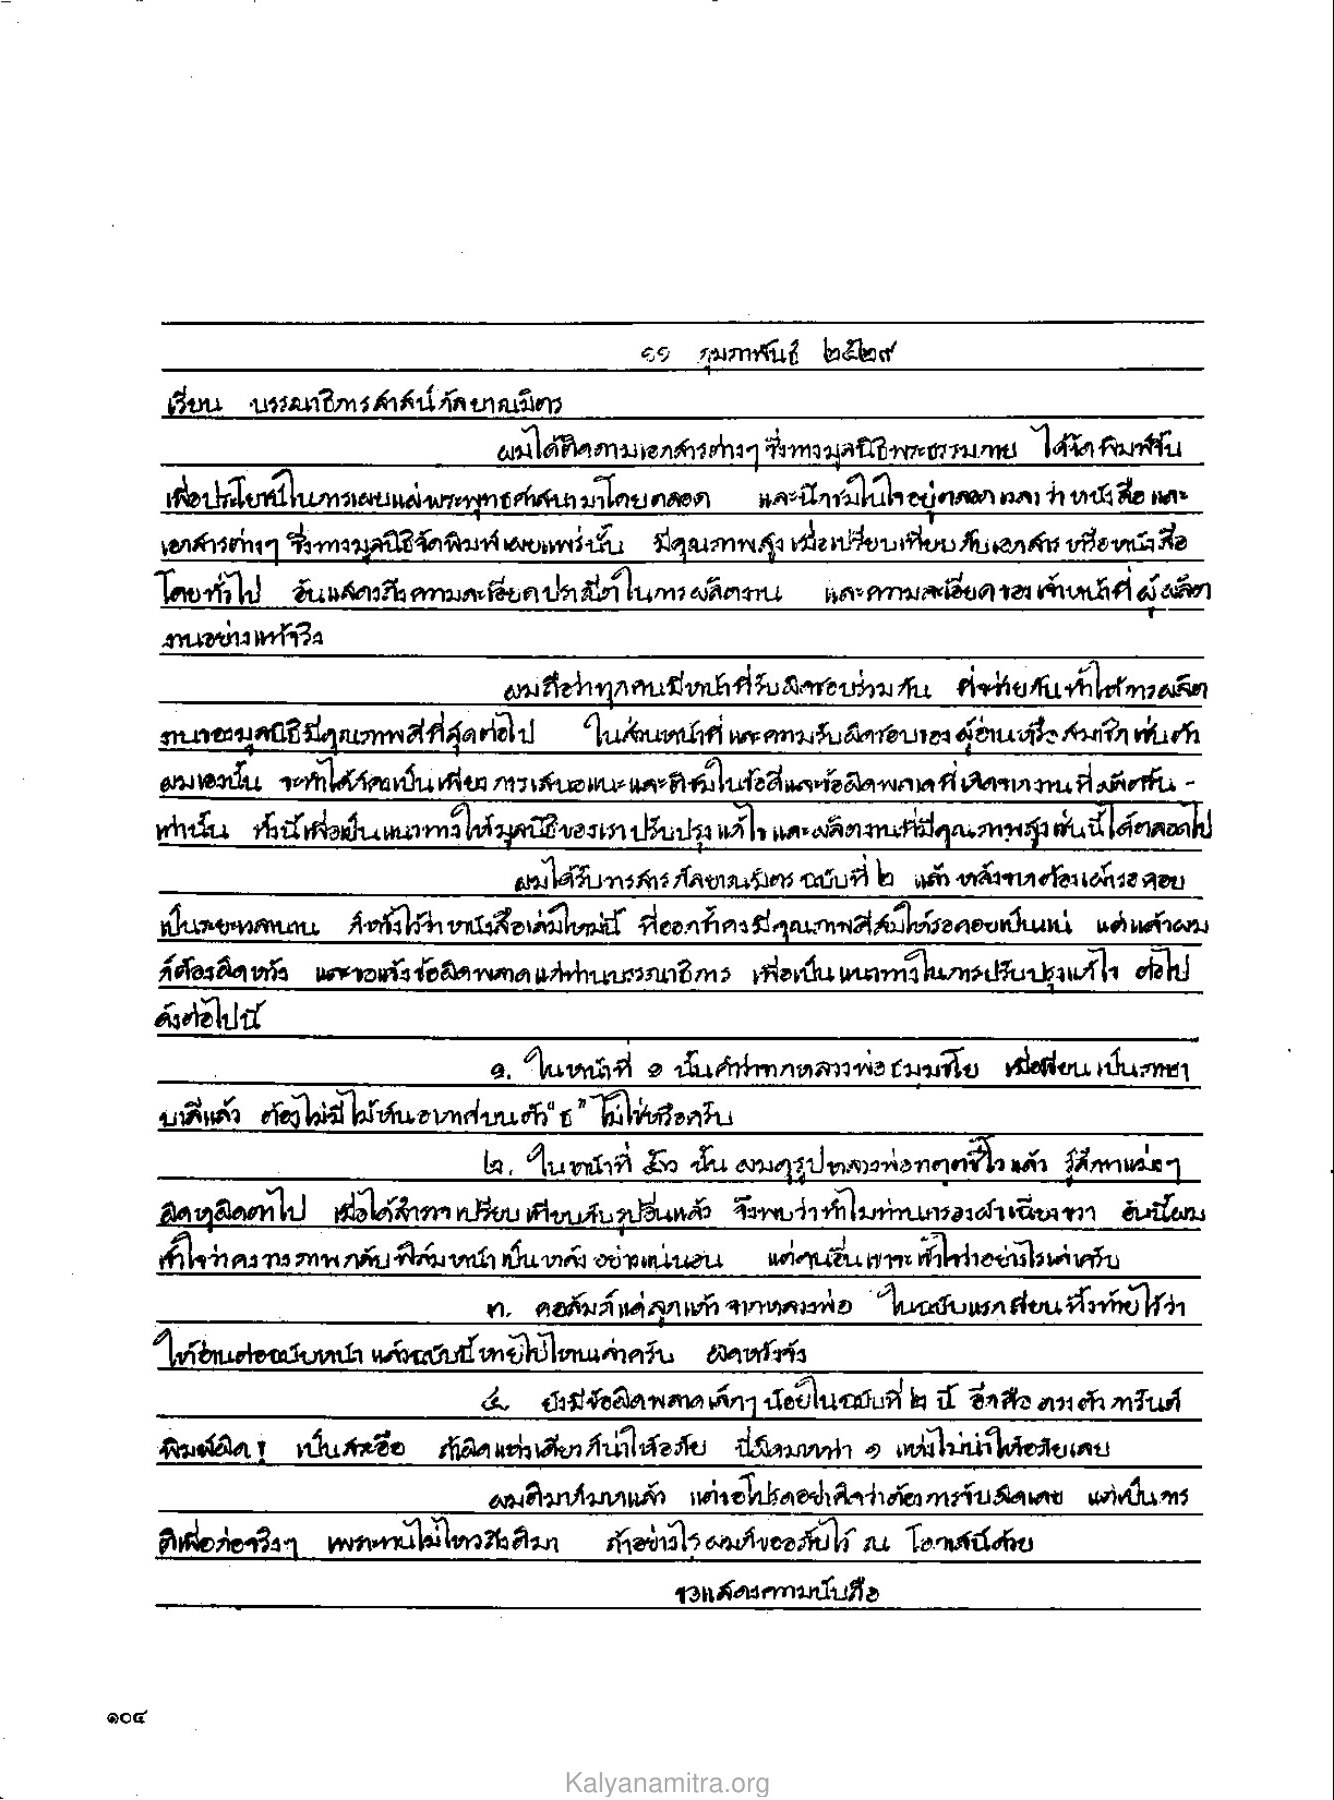 ๑๑ กุมภาพันธ์ ๒๕๒๙
เรียน บรรณาธิการสาสน์กัลยาณมิตร
ผมได้ติดตามเอกสารต่างๆ ซึ่งทางมูลนิธิพระธรรมกาย ได้จัดพิมพ์ขึ้น
เพื่อประโยชน์ในการเผยแผ่พระพุทธศาสนามาโดยตลอด และนึกชมในใจอยู่ตลอดเวลาว่า หนังสือและ
เอกสารต่างๆ ซึ่งทางมูลนิธิจัดพิมพ์เผยแพร่นั้น มีคุณภาพสูง เมื่อเปรียบเทียบกับเอกสาร หรือหนังสือ
โดยทั่วไป อันแสดงถึงความละเอียดปราณีตในการผลิตงาน และความละเอียดของเจ้าหน้าที่ผู้ผลิต
งานอย่างแท้จริง
ผมถือว่าทุกคนมีหน้าที่รับผิดชอบร่วมกัน ที่จะช่วยกันทำให้การผลิต
งานของมูลนิธิมีคุณภาพดีที่สุดต่อไป ในส่วนหน้าที่และความรับผิดชอบของผู้อ่านหรือสมาชิกเช่นตัว
ผมเองนั้น จะทำได้ก็คงเป็นเพียงการเสนอแนะและติชมในข้อดีและข้อผิดพลาดที่เกิดจากงานที่ผลิตขึ้น -
เท่านั้น ทั้งนี้เพื่อเป็นแนวทางให้มูลนิธิของเราปรับปรุงแก้ไข และผลิตงานที่มีคุณภาพสูงเช่นนี้ได้ตลอดไป
ผมได้รับวารสารกัลยาณมิตร ฉบับที่ ๒ แล้ว หลังจากต้องเฝ้ารอคอย
เป็นระยะเวลานาน ก็หวังไว้ว่าหนังสือเล่มใหม่นี้ ที่ออกช้าคงมีคุณภาพดีสมให้รอคอยเป็นแน่ แต่แล้วผม
ก็ต้องผิดหวัง และขอแจ้งข้อผิดพลาดแก่ท่านบรรณาธิการ เพื่อเป็นแนวทางในการปรับปรุงแก้ไข ต่อไป
ดังต่อไปนี้
๑. ในหน้าที่ ๑ นั้นคำว่าหลวงพ่อธมฺมชโย เมื่อเขียนเป็นภาษา
บาลีแล้ว ต้องไม่มีไม้หันอากาศบนตัว "ธ" ไม่ใช่หรือครับ
๒. ในหน้าที่ นั้น ผมดูรูปหลวงพ่อทตฺตชีโวแล้ว รู้สึกแม่งๆ
ผิดหูผิดตาไป เมื่อได้สำรวจเปรียบเทียบกับรูปอื่นแล้ว จึงพบว่าทำไมท่านครองผ้าเฉียงขวา อันนี้ผม
เข้าใจว่าคงวางภาพกลับฟิล์มหน้าเป็นหลังอย่างแน่นอน แต่คนอื่นเขาจะเข้าใจว่าอย่างไรเล่าครับ
๓. คอลัมภ์แด่ลูกแก้วจากหลวงพ่อ ในฉบับแรกเขียนทิ้งท้ายไว้ว่า
ให้อ่านต่อฉบับหน้า แล้วฉบับนี้หายไปไหนเล่าครับ ผิดหวังจัง
๔. ยังมีข้อผิดพลาดเล็กๆ น้อยในฉบับที่ ๒ นี้ อีกคือ ตรงตัวการันต์
พิมพ์ผิด! เป็นสะอือ ถ้าผิดแห่งเดียวก็น่าให้อภัย นี่ผิดมากกว่า ๑ แห่งไม่น่าให้อภัยเลย
ผมติมาก็มากแล้ว แต่ขอโปรดอย่าคิดว่าต้องการจับผิดเลย แต่เป็นการ
ติเพื่อก่อจริงๆ เพราะทนไม่ไหวถึงติมา ถ้าอย่างไรผมก็ขออภัยไว้ ณ โอกาสนี้ด้วย
ขอแสดงความนับถือ
๑๐๔
Kalyanamitra.org